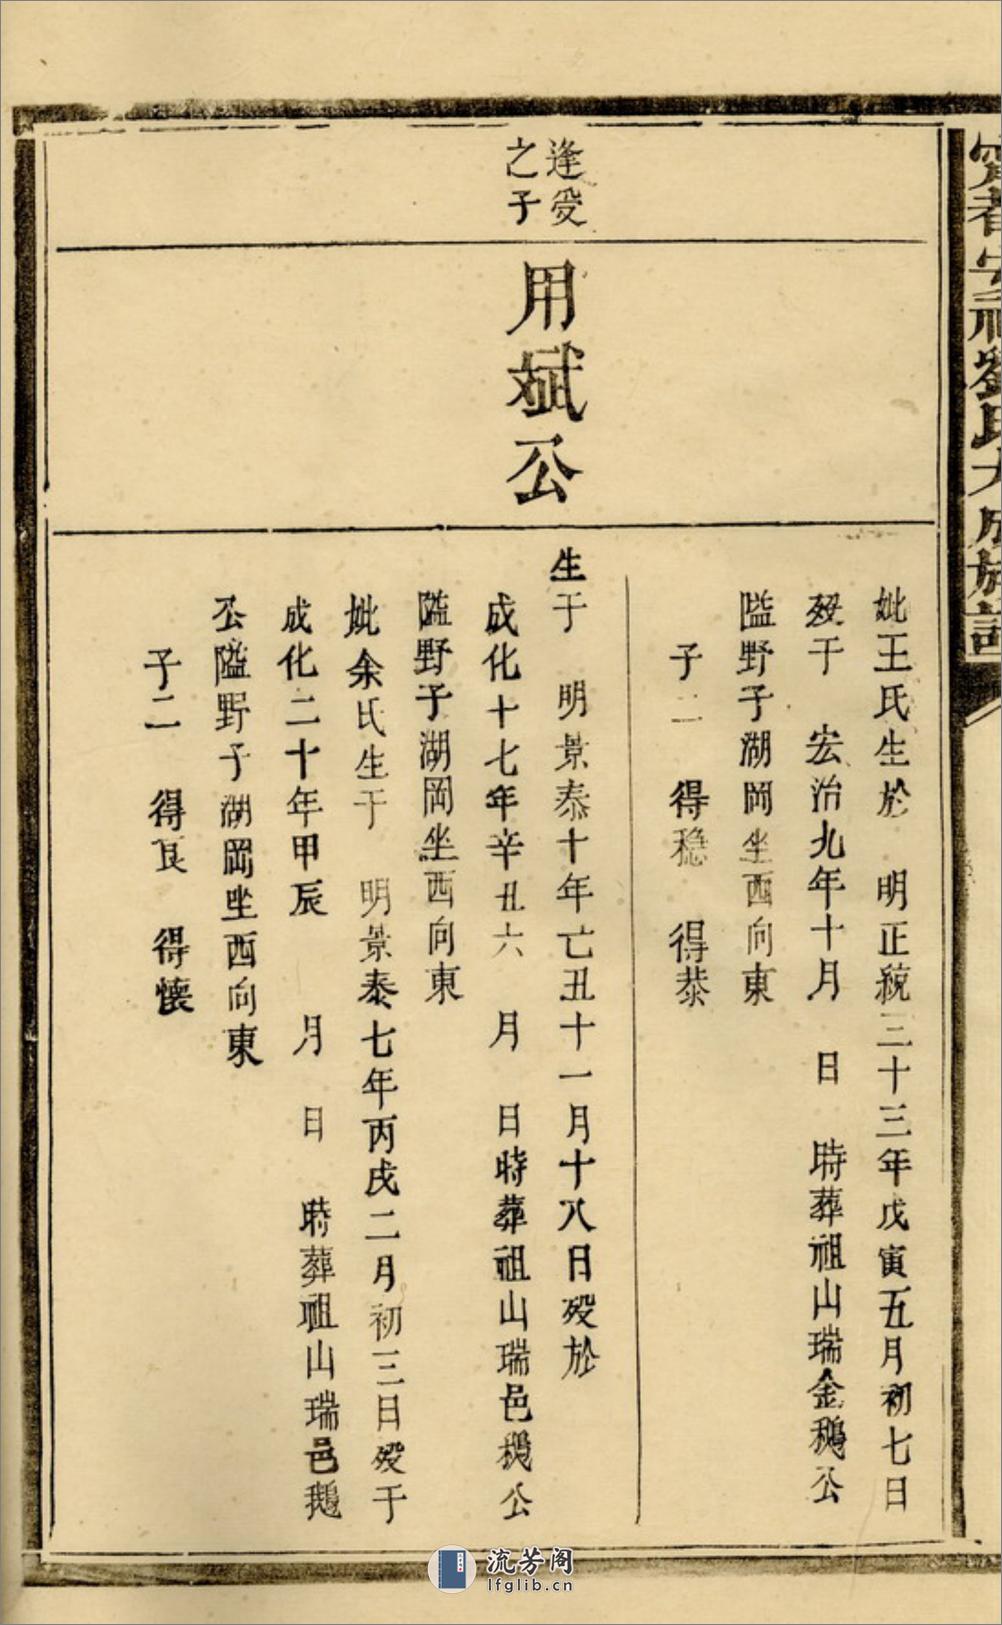 寧都安福劉氏大成族譜
妣王氏生於 明正統三十三年戊寅五月初七日
殁于 宏治九年十月 日 時葬祖山瑞金鵝公
隘野子湖岡坐酉向東
子二 得穩 得恭
逢受
之子
用斌公
生于 明景泰十年亡丑十一月十八日殁於
成化十七年辛丑六 月 日時葬祖山瑞邑鵝公
隘野子湖岡坐酉向東
妣余氏生于 明景泰七年丙戌二月初三日殁于
成化二十年甲辰 月 日 時葬祖山瑞邑鵝
公隘野子湖岡坐酉向東
子二 得良 得懷
流芳阁
lfglib.cn